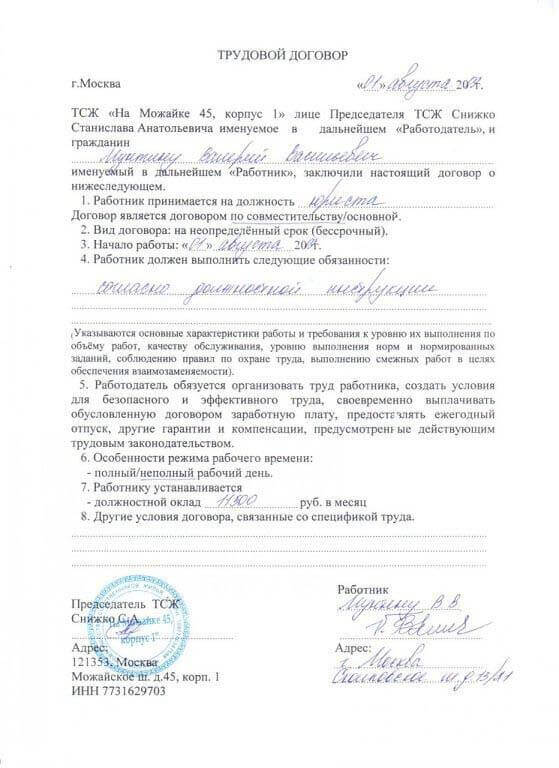 ТРУДОВОЙ ДОГОВОР
г.Москва «01» августа 20
ТСЖ «На Можайке 45, корпус 1» лице Председателя ТСЖ Снижко
Станислава Анатольевича именуемое в дальнейшем «Работодатель», и
гражданин
Валерий Васильевич
именуемый в дальнейшем «Работник», заключили настоящий договор о
нижеследующем.
1. Работник принимается на должность юриста
Договор является договором по совместительству/основной.
2. Вид договора: на неопределённый срок (бессрочный).
3. Начало работы: «01» августа 20
4. Работник должен выполнить следующие обязанности:
согласно должностной инструкции
(Указываются основные характеристики работы и требования к уровню их выполнения по
объёму работ, качеству обслуживания, уровню выполнения норм и нормированных
заданий, соблюдению правил по охране труда, выполнению смежных работ в целях
обеспечения взаимозаменяемости).
5. Работодатель обязуется организовать труд работника, создать условия
для безопасного и эффективного труда, своевременно выплачивать
обусловленную договором заработную плату, предоставлять ежегодный
отпуск, другие гарантии и компенсации, предусмотренные действующим
трудовым законодательством.
6. Особенности режима рабочего времени:
- полный/неполный рабочий день.
7. Работнику устанавливается
- должностной оклад 11500 руб. в месяц
8. Другие условия договора, связанные со спецификой труда.
Председатель ТСЖ
Снижко С.А.
"На Можайке 45,
корпус 1"
Адрес:
121353, Москва
Можайское ш. д.45, корп. 1
ИНН 7731629703
Работник
В.В.
Адрес:
г. Москва
Сколковское ш. д.